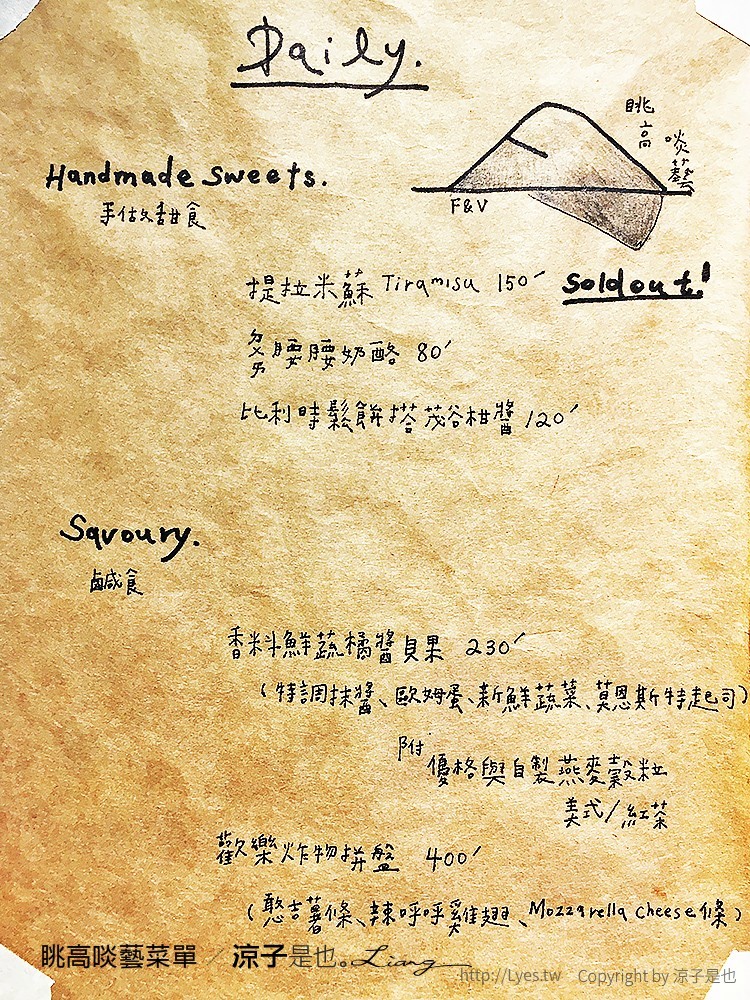 Daily.
眺高
啖藝
F&V
Handmade sweets.
手作ㄉ甜食
提拉米蘇 Tiramisu 150 Soldout!
ㄆㄡㄞ腰腰奶酪 80
比利時鬆餅搭茂谷柑醬 120
Savoury.
鹹食
香料鮮蔬橘醬貝果 230
(特調抹醬、歐姆蛋、新鮮蔬菜、莫恩斯特起司)
附
優格與自製燕麥穀粒
美式/紅茶
歡樂炸物拼盤 400
(憨吉薯條、辣呼呼雞翅、Mozzarella cheese條)
眺高啖藝菜單 / 涼子是也。Liang
http://Lyes.tw Copyright by 涼子是也